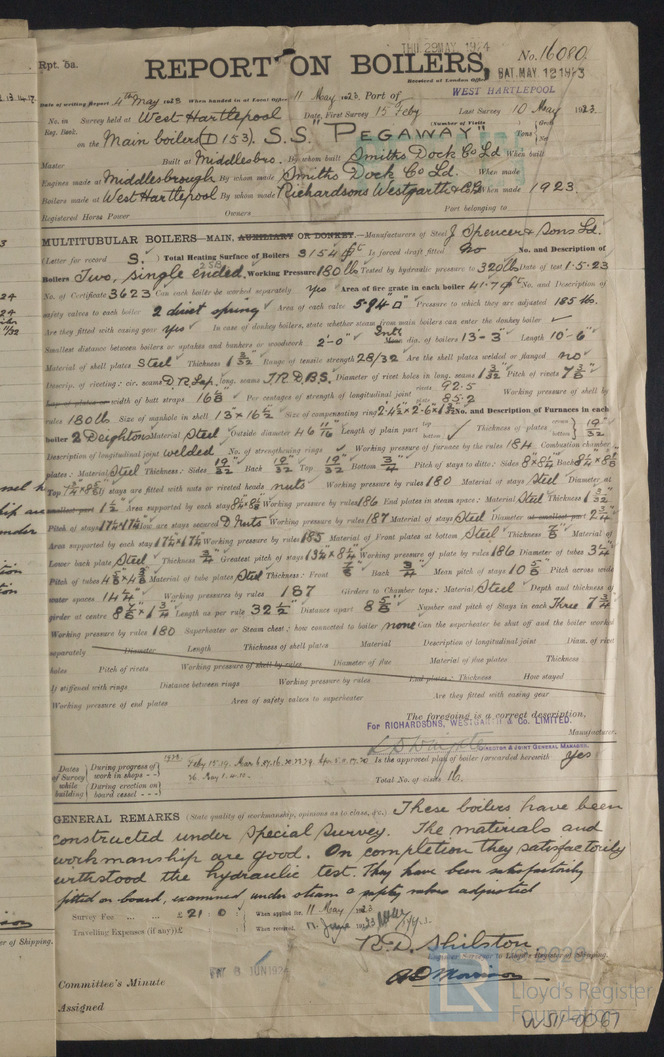 Rpt. 5a.
THU 29 MAY 1924
No. 16080
REPORT ON BOILERS,
Received at London Office SAT. MAY 12 1923
WEST HARTLEPOOL
Date of writing Report 4th May 1923 When handed in at Local Office 11 May 1923. Port of
No. in Survey held at West Hartlepool Date, First Survey 15 Feby Last Survey 10 May 1923.
Reg. Book. (Number of Visits
on the Main boilers (D153). S.S. "PEGAWAY" Tons Gross Net
Master Built at Middlesbro. By whom built Smiths Dock Co Ld When built
Engines made at Middlesbrough By whom made Smiths Dock Co Ld. When made
Boilers made at West Hartlepool By whom made Richardsons Westgarth & Co Ld When made 1923.
Registered Horse Power Owners Port belonging to
MULTITUBULAR BOILERS—MAIN, AUXILIARY OR DONKEY.—Manufacturers of Steel J. Spencer & Sons Ld.
(Letter for record S.) Total Heating Surface of Boilers 3154 Is forced draft fitted No No. and Description of
Boilers Two, single ended, Working Pressure 180 lbs Tested by hydraulic pressure to 320 lbs Date of test 1.5.23
No. of Certificate 3623 Can each boiler be worked separately Yes Area of fire grate in each boiler 41.7 No. and Description of
safety valves to each boiler 2 direct spring Area of each valve 5.94 □" Pressure to which they are adjusted 185 lb.
Are they fitted with easing gear yes In case of donkey boilers, state whether steam from main boilers can enter the donkey boiler
Smallest distance between boilers or uptakes and bunkers or woodwork 2'-0" Mean dia. of boilers 13'-3" Length 10'-6"
Material of shell plates Steel Thickness 1 3/32 Range of tensile strength 28/32 Are the shell plates welded or flanged no
Descrip. of riveting: cir. seams D.R. Lap. long. seams T.R.D.B.S. Diameter of rivet holes in long. seams 1 3/32 Pitch of rivets 7 5/8"
Lap of plates or width of butt straps 16 5/8 Per centages of strength of longitudinal joint rivets 92.5 plate 85.2 Working pressure of shell by
rules 180 lbs Size of manhole in shell 13" × 16 1/2 Size of compensating ring No. and Description of Furnaces in each
boiler 2 Deightons Material Steel Outside diameter 46 Length of plain part top bottom Thickness of plates crown bottom 19/32"
Description of longitudinal joint welded No. of strengthening rings Working pressure of furnace by the rules 184. Combustion chamber
plates: Material Steel Thickness: Sides 19/32 Back 19/32 Top 19/32 Bottom 3/4 Pitch of stays to ditto: Sides 8"×8 1/4" Back
Top If stays are fitted with nuts or riveted heads nuts Working pressure by rules 180 Material of stays Steel Diameter at
smallest part 1 1/2 Area supported by each stay Working pressure by rules 186 End plates in steam space: Material Steel Thickness 1 3/32
Pitch of stays 17 1/4×17 1/4 How are stays secured D. Nuts Working pressure by rules 187 Material of stays Steel Diameter at smallest part 2 3/4
Area supported by each stay 17 1/4×17 1/4 Working pressure by rules 185 Material of Front plates at bottom Steel Thickness 7/8" Material of
Lower back plate Steel Thickness 3/4 Greatest pitch of stays 13 1/2 × 8 1/4 Working pressure of plate by rules 186 Diameter of tubes 3 1/4"
Pitch of tubes Material of tube plates Steel Thickness: Front 7/8 Back 3/4 Mean pitch of stays 10 5/8 Pitch across wide
water spaces 14 1/4" Working pressures by rules 187 Girders to Chamber tops: Material Steel Depth and thickness of
girder at centre 8 7/8"×1 3/4 Length as per rule 32 1/2" Distance apart 8 5/8 Number and pitch of Stays in each Three
Working pressure by rules 180 Superheater or Steam chest; how connected to boiler none Can the superheater be shut off and the boiler worked
separately Diameter Length Thickness of shell plates Material Description of longitudinal joint Diam. of rivet
holes Pitch of rivets Working pressure of shell by rules Diameter of flue Material of flue plates Thickness
If stiffened with rings Distance between rings Working pressure by rules End plates: Thickness How stayed
Working pressure of end plates Area of safety valves to superheater Are they fitted with easing gear
The foregoing is a correct description,
For RICHARDSONS, WESTGARTH & Co. LIMITED.
Manufacturer.
DIRECTOR & JOINT GENERAL MANAGER.
Dates of Survey while building During progress of work in shops - - Is the approved plan of boiler forwarded herewith yes
During erection on board vessel - - - Total No. of visits 16.
GENERAL REMARKS (State quality of workmanship, opinions as to class, &c.) These boilers have been
constructed under Special Survey. The materials and
workmanship are good. On completion they satisfactorily
withstood the hydraulic test. They have been satisfactorily
fitted on board, examined under steam & safety valves adjusted
Survey Fee ... ... £ 21 : 0 When applied for, 11 May 1923
Travelling Expenses (if any) £ When received, 1923
R.D. Shilston
Engineer Surveyor to Lloyd's Register of Shipping.
Committee's Minute 6 JUN 1924
Assigned
LR
Lloyd's Register
Foundation
W511-0067